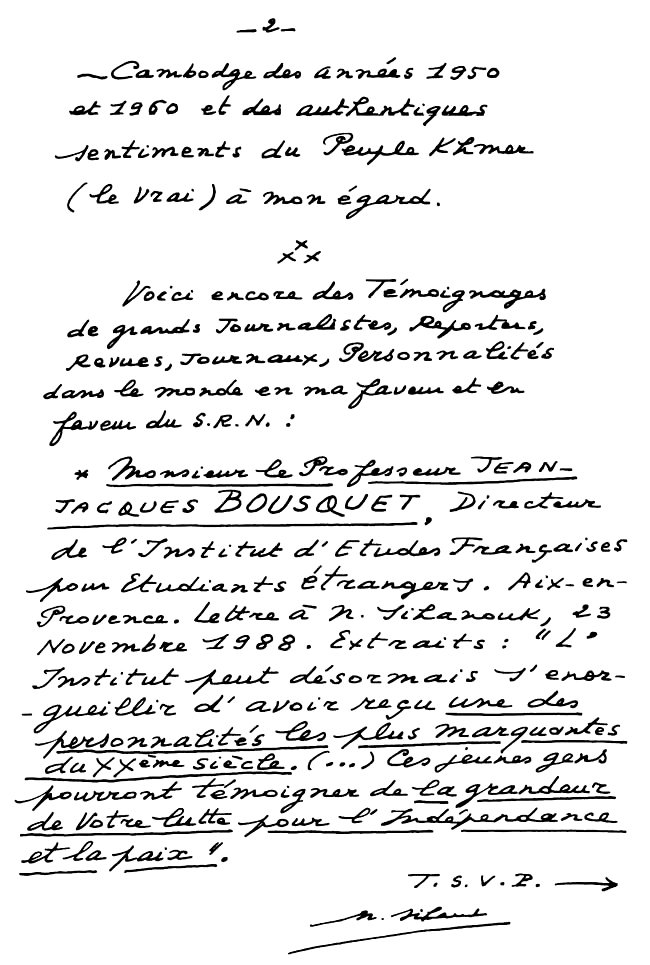 — 2 —
~ Cambodge des années 1950
et 1960 et des authentiques
sentiments du Peuple Khmer
(le vrai) à mon égard.
x
x x
Voici encore des Témoignages
de grands Journalistes, Reporters,
Revues, Journaux, Personnalités
dans le monde en ma faveur et en
faveur du S.R.N. :
* Monsieur le Professeur JEAN-
JACQUES BOUSQUET, Directeur
de l'Institut d'Etudes Françaises
pour Etudiants étrangers. Aix-en-
Provence. Lettre à N. Sihanouk, 23
Novembre 1988. Extraits : "L'
Institut peut désormais s'enor-
-gueillir d'avoir reçu une des
personnalités les plus marquantes
du XXème siècle. (...) Ces jeunes gens
pourront témoigner de la grandeur
de Votre lutte pour l'Indépendance
et la paix".
T. S. V. P. →
N. Sihanouk